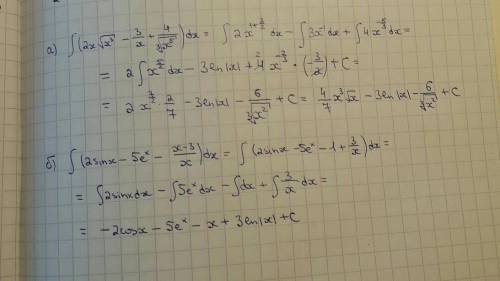 а) ∫(2x√x³ − 3/x + 4/∛x⁵)dx = ∫2x^(1+3/2)dx − ∫3x⁻¹dx + ∫4x^(−5/3)dx =
= 2∫x^(5/2)dx − 3ln|x| + 4x^(−2/3) · (−3/2) + C =
= 2x^(7/2) · 2/7 − 3ln|x| − 6/∛x² + C = 4/7 x³√x − 3ln|x| − 6/∛x² + C
б) ∫(2sinx − 5eˣ − (x−3)/x)dx = ∫(2sinx − 5eˣ − 1 + 3/x)dx =
= ∫2sinxdx − ∫5eˣdx − ∫dx + ∫3/x dx =
= −2cosx − 5eˣ − x + 3ln|x| + C